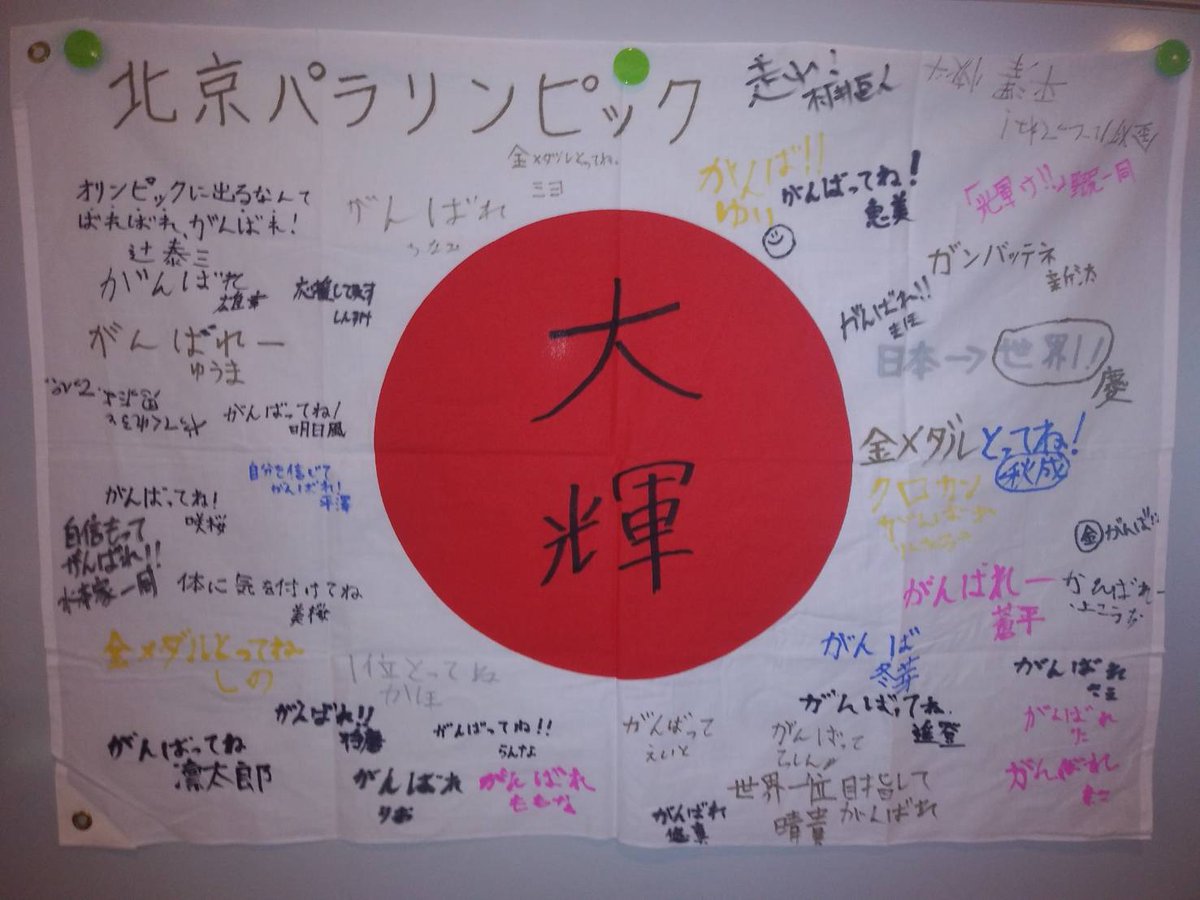 北京パラリンピック
走れ!
金メダルとってね。
ミヨ
がんば!!
ゆい
がんばってね!
恵美
「光輝け!!」
一同
オリンピックに出るなんて
ばればれ、がんばれ!
辻泰三
がんばれ
がんばれ
応援してます
しんすけ
ガンバッテネ
がんばれ!!
大
輝
がんばれー
ゆうま
日本→世界!!
慶
がんばってね!
明日風
金メダルとってね!
秋成
自分を信じて
がんばれ!
平澤
クロカン
がんばれ
がんばってね!
咲桜
自信もって
がんばれ!!
家一同
金がんば!!
体に気を付けてね
美桜
がんばれー
蒼平
がんばれー
金メダルとってね
しの
1位とってね
かほ
がんば
冬芽
がんばれ
がんばれ!!
がんばってね!!
らんな
がんばって
えいと
がんばってね
がんばれ
がんばってね
凛太郎
がんばれ
りお
がんばれ
ももな
がんばって
がんばれ
世界一位目指して
がんばれ
晴貴
がんばれ
悠真